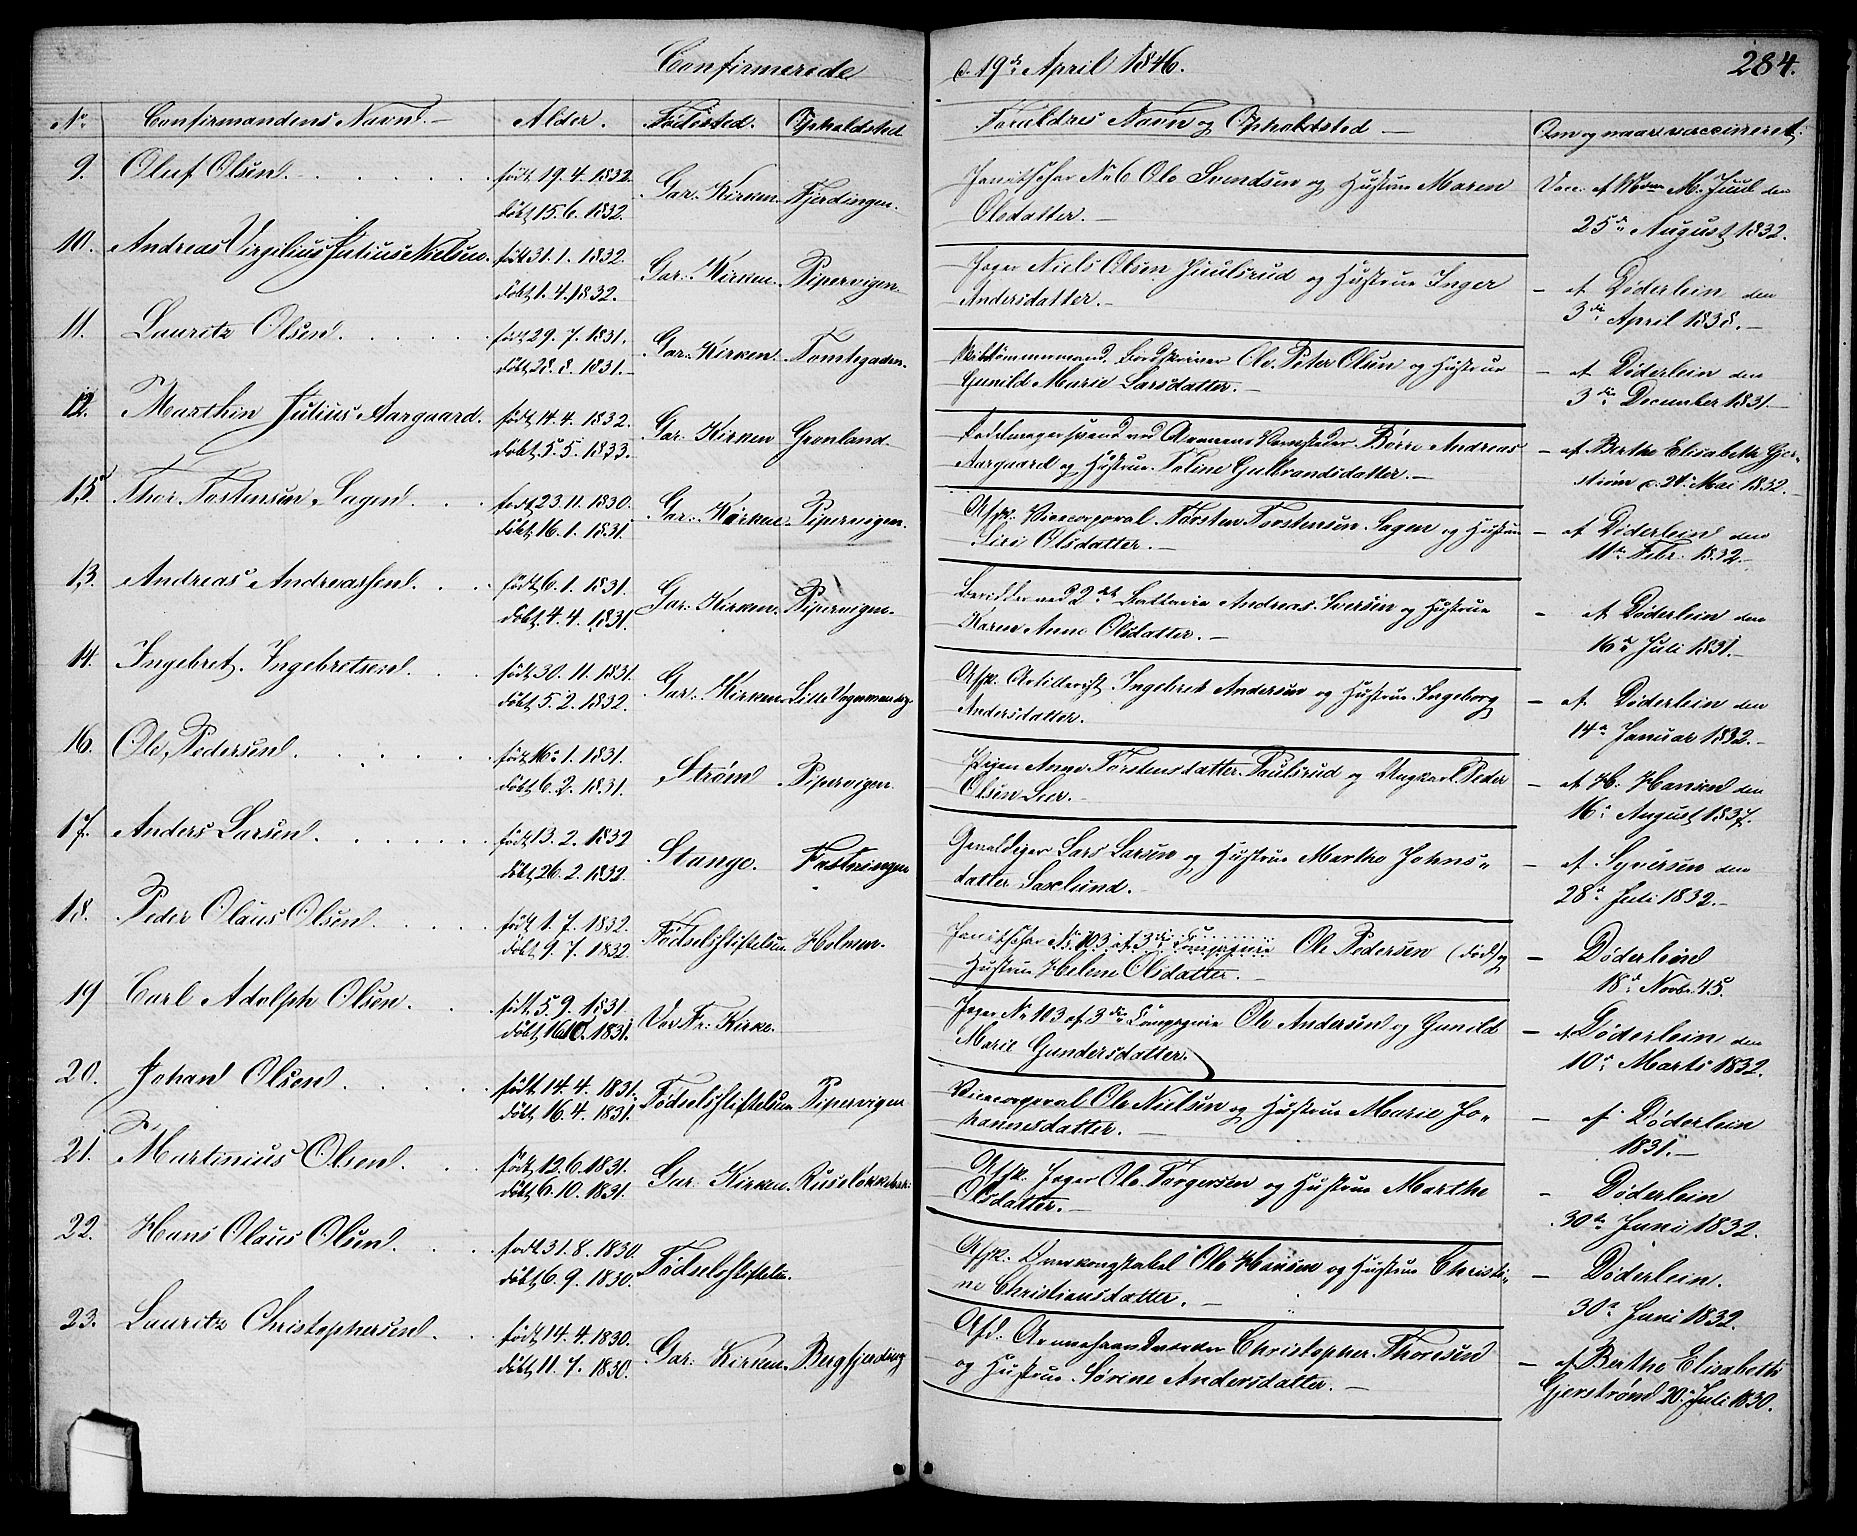 Confirmerede d. 19de April 1846. 284.
No Confirmandens Navn. Alder. Födested. Opholdsted Forældres Navn og Opholdsted Om og naar vaccineret.
9. Oluf Olsen födt 19. 4. 1832. Gar: Kirken. Fjerdingen. Janitschar No 6 Ole Svendsen og Hustrue Maren Vac. af M. Juul den
döbt 15. 6. 1832. Olsdatter. 25de August 1832.
10. Andreas Virgilius Julius Nielsen. födt 31. 1. 1832. Gar: Kirken. Pipervigen. Jæger Niels Olsen Juulsrud og Hustrue Inger – af Döderlein den
döbt 1. 4. 1832. Andersdatter. 3die April 1838.
11. Lauritz Olsen födt 29. 7. 1831. Gar: Kirken. Tomtegaden. Ole Peter Olsen og Hustrue – af Döderlein den
döbt 28. 8. 1831. Gunild Marie Larsdatter. 3die December 1831.
12. Marthin Julius Aargaard. födt 14. 4. 1832. Gar: Kirken Grönland Sadelmagersvend ved Armeens Værksteder Börre Andreas – af Berthe Elisabeth Gjer-
döbt 5. 5. 1833. Aargaard og Hustrue Toline Gulbrandsdatter. ström d. 20. Mai 1832.
15. Thor Tostensen Sagen födt 23. 11. 1830. Gar: Kirken. Pipervigen. Afsk: Vicecorporal Torsten Torstensen Sagen og Hustrue – af Döderlein den
döbt 16. 1. 1831. Siri Olsdatter. 11te Febr. 1832.
13. Andreas Andreassen födt 6. 1. 1831. Gar: Kirken. Pipervigen. ved 2det Batterie Andreas Iversen og Hustrue – af Döderlein den
döbt 4. 4. 1831. Karen Anne Olsdatter. 16de Juli 1831.
14. Ingebret Ingebretsen födt 30. 11. 1831. Gar: Kirken Lille Vognmandsg. Afsk. Artillerist Ingebret Andersen og Hustrue Ingeborg – af Döderlein den
döbt 5. 2. 1832. Andersdatter. 14de Januar 1832.
16. Ole Pedersen födt 16. 1. 1831. Ström Pipervigen. Pigen Ange Torstensdatter Paulsrud og Ungkarl Peder – af H. Hansen den
döbt 6. 2. 1831. Olsen Lier. 16. August 1837.
17. Anders Larsen födt 13. 2. 1832 Stange. Fæstningen Gevaldiger Lars Larsen og Hustrue Marthe Johns- – af Syversen den
döbt 26. 2. 1832. datter Saxlund. 28de Juli 1832.
18. Peder Olaus Olsen födt 1. 7. 1832. Födselsstiftelsen Holmen. Janitschar No 103 af 3die Compagnie Ole Pedersen (död) og – Döderlein
döbt 9. 7. 1832. Hustrue Helene Olsdatter. 18de Novbr. 45.
19 Carl Adolph Olsen födt 5. 9. 1831. Vor Fr: Kirke. Jæger No 103 af 3die Compagnie Ole Andersen og Gunild – af Döderlein den
döbt 16. 10. 1831. Marie Gundersdatter. 10de Marts 1832.
20. Johan Olsen födt 14. 4. 1831. Födselsstiftelsen Pipervigen Vicecorporal Ole Nielsen og Hustrue Marie Jo- – af Döderlein
döbt 16. 4. 1831. hannesdatter. 1831.
21. Martinius Olsen födt 12. 6. 1831. Gar: Kirken. Ruselökbak: Afsk. Jæger Ole Torgersen og Hustrue Marthe – Döderlein
döbt 6. 10. 1831. Olsdatter. 30te Juni 1832.
22. Hans Olaus Olsen födt 31. 8. 1830. Födselsstiftelsen. Afsk. Overkonstabel Ole Hansen og Hustrue Christi- – Döderlein.
döbt 6. 9. 1830. ne Christiansdatter. 30te Juni 1832.
23. Lauritz Christophersen födt 14. 4. 1830. Gar: Kirken. Bergfjerding Afd: Armeehaandværker Christopher Thoresen – af Berthe Elisabeth
döbt 11. 7. 1830. og Hustrue Sörine Andersdatter. Gjerström 20. Juli 1830.